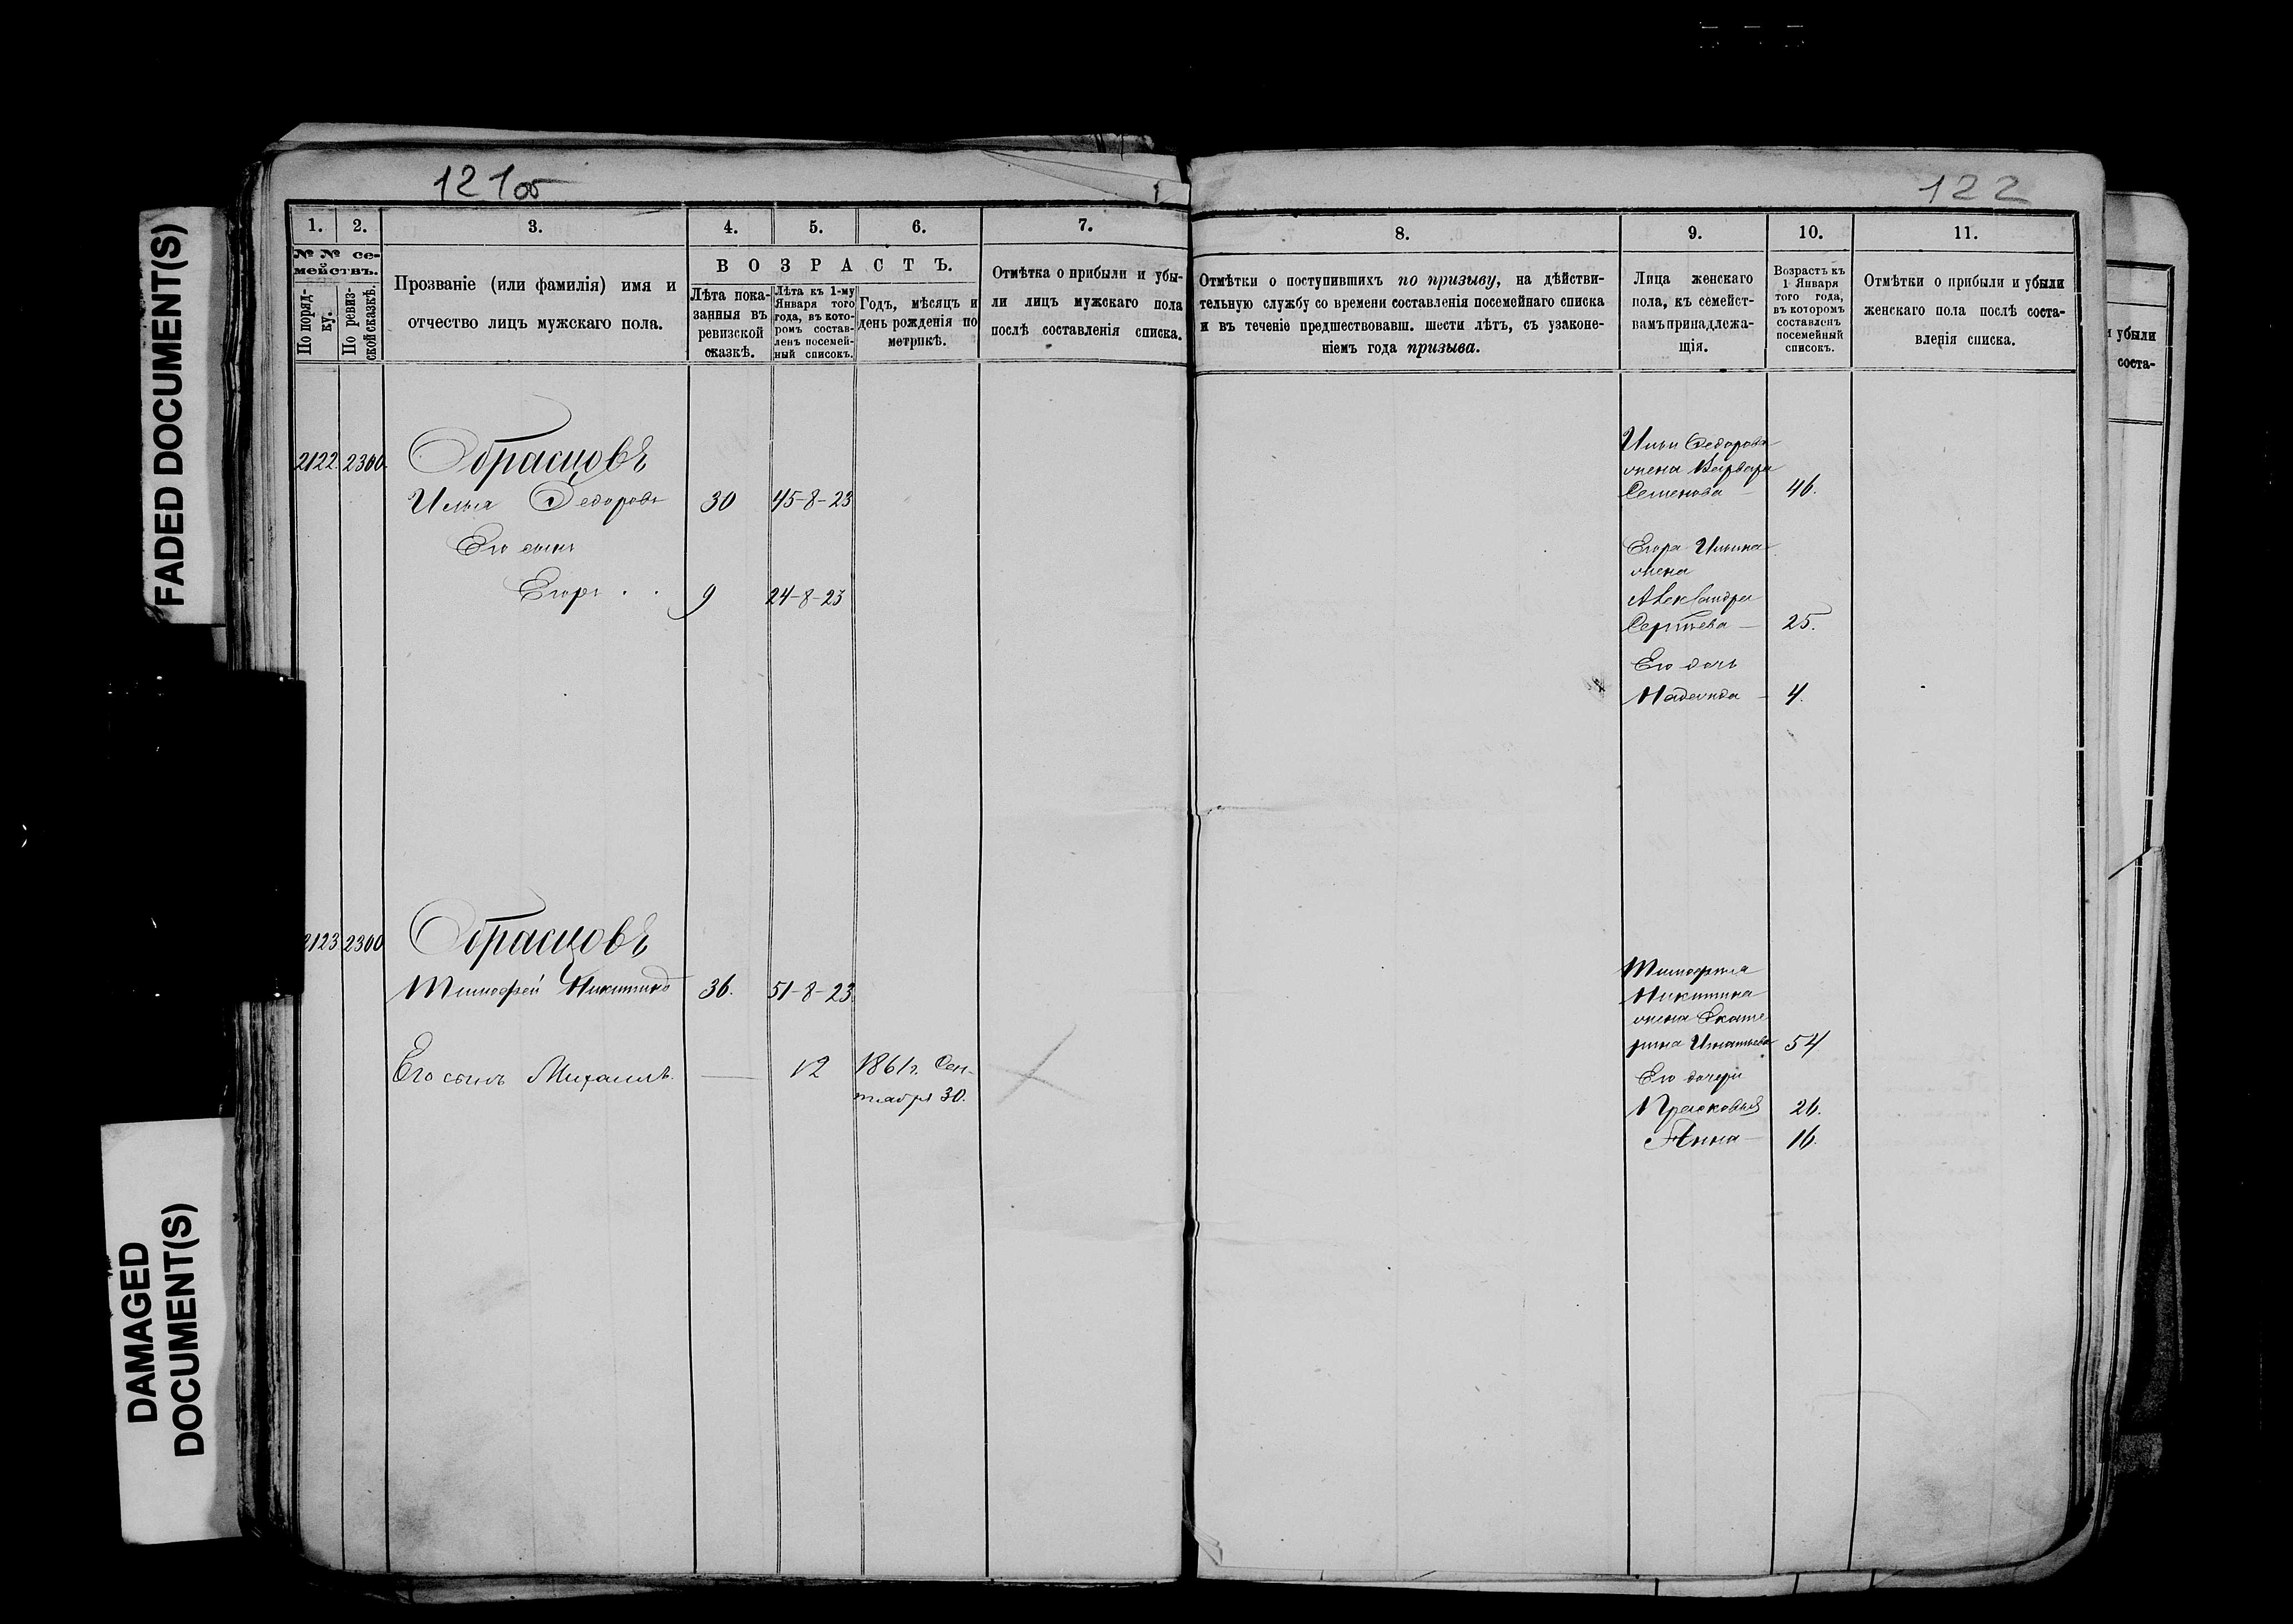 FADED DOCUMENT(S)
DAMAGED
DOCUMENT(S)
121об
1.
2.
3.
4.
5.
6.
7.
№ № се-
мействъ.
По поряд-
ку.
По ревиз-
ской сказкѣ.
Прозваніе (или фамилія) имя и
отчество лицъ мужскаго пола.
ВОЗРАСТЪ.
Лѣта пока-
занныя въ
ревизской
сказкѣ.
Лѣта къ 1-му
Января того
года, въ кото-
ромъ состав-
ленъ посемей-
ный списокъ.
Годъ, мѣсяцъ и
день рожденія по
метрикѣ.
Отмѣтка о прибыли и убы-
ли лицъ мужскаго пола
послѣ составленія списка.
2122. 2300. Образцовъ
Илья Федоровъ 30 45-8-23
Его сынъ
Егоръ 9 24-8-23
2123 2300 Образцовъ
Тимофей Никитинъ 36. 51-8-23
Его сынъ Михаилъ. — 12 1861г. Сен-
тября 30.
122
8.
9.
10.
11.
Отмѣтки о поступившихъ по призыву, на дѣйстви-
тельную службу со времени составленія посемейнаго списка
и въ теченіе предшествовавш. шести лѣтъ, съ узаконе-
ніемъ года призыва.
Лица женскаго
пола, къ семейст-
вамъ принадлежа-
щія.
Возрастъ къ
1 Января
того года,
въ которомъ
составленъ
посемейный
списокъ.
Отмѣтки о прибыли и убыли
женскаго пола послѣ соста-
вленія списка.
Ильи Федорова
жена Варвара
Семенова — 46.
Егора Ильина
жена
Александра
Сергѣева — 25.
Его дочь
Надежда — 4.
Тимофея
Никитина
жена Екате
рина Игнатьева 54
Его дочери
Прасковья 26.
Анна — 16.
и убыли
соста-